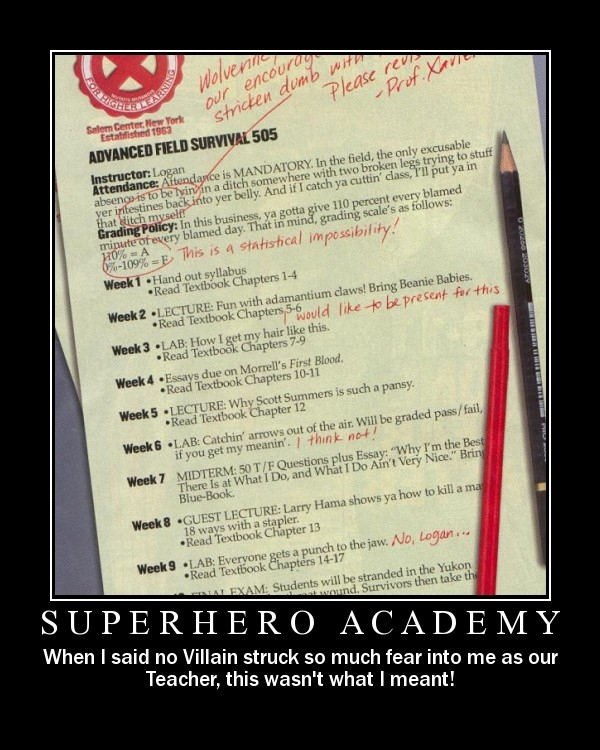 Wolverine,
our encourag
stricken dumb with
Please revis
-Prof. Xavier
FOR HIGHER LEARNING
Salem Center, New York
Established 1963
ADVANCED FIELD SURVIVAL 505
Instructor: Logan
Attendance: Attendance is MANDATORY. In the field, the only excusable
absence is to be lyin' in a ditch somewhere with two broken legs trying to stuff
yer intestines back into yer belly. And if I catch ya cuttin' class, I'll put ya in
that ditch myself
Grading Policy: In this business, ya gotta give 110 percent every blamed
minute of every blamed day. That in mind, grading scale's as follows:
110% = A
0%-109% = F
This is a statistical impossibility!
Week 1 •Hand out syllabus
•Read Textbook Chapters 1-4
Week 2 •LECTURE: Fun with adamantium claws! Bring Beanie Babies.
•Read Textbook Chapters 5-6
I would like to be present for this
Week 3 •LAB: How I get my hair like this.
•Read Textbook Chapters 7-9
Week 4 •Essays due on Morrell's First Blood.
•Read Textbook Chapters 10-11
Week 5 •LECTURE: Why Scott Summers is such a pansy.
•Read Textbook Chapter 12
Week 6 •LAB: Catchin' arrows out of the air. Will be graded pass/fail,
if you get my meanin'. I think not!
Week 7 MIDTERM: 50 T/F Questions plus Essay: "Why I'm the Best
There Is at What I Do, and What I Do Ain't Very Nice." Brin
Blue-Book.
Week 8 •GUEST LECTURE: Larry Hama shows ya how to kill a ma
18 ways with a stapler.
•Read Textbook Chapter 13
Week 9 •LAB: Everyone gets a punch to the jaw. No, Logan...
•Read Textbook Chapters 14-17
FINAL EXAM: Students will be stranded in the Yukon
wound. Survivors then take th
SUPERHERO ACADEMY
When I said no Villain struck so much fear into me as our
Teacher, this wasn't what I meant!